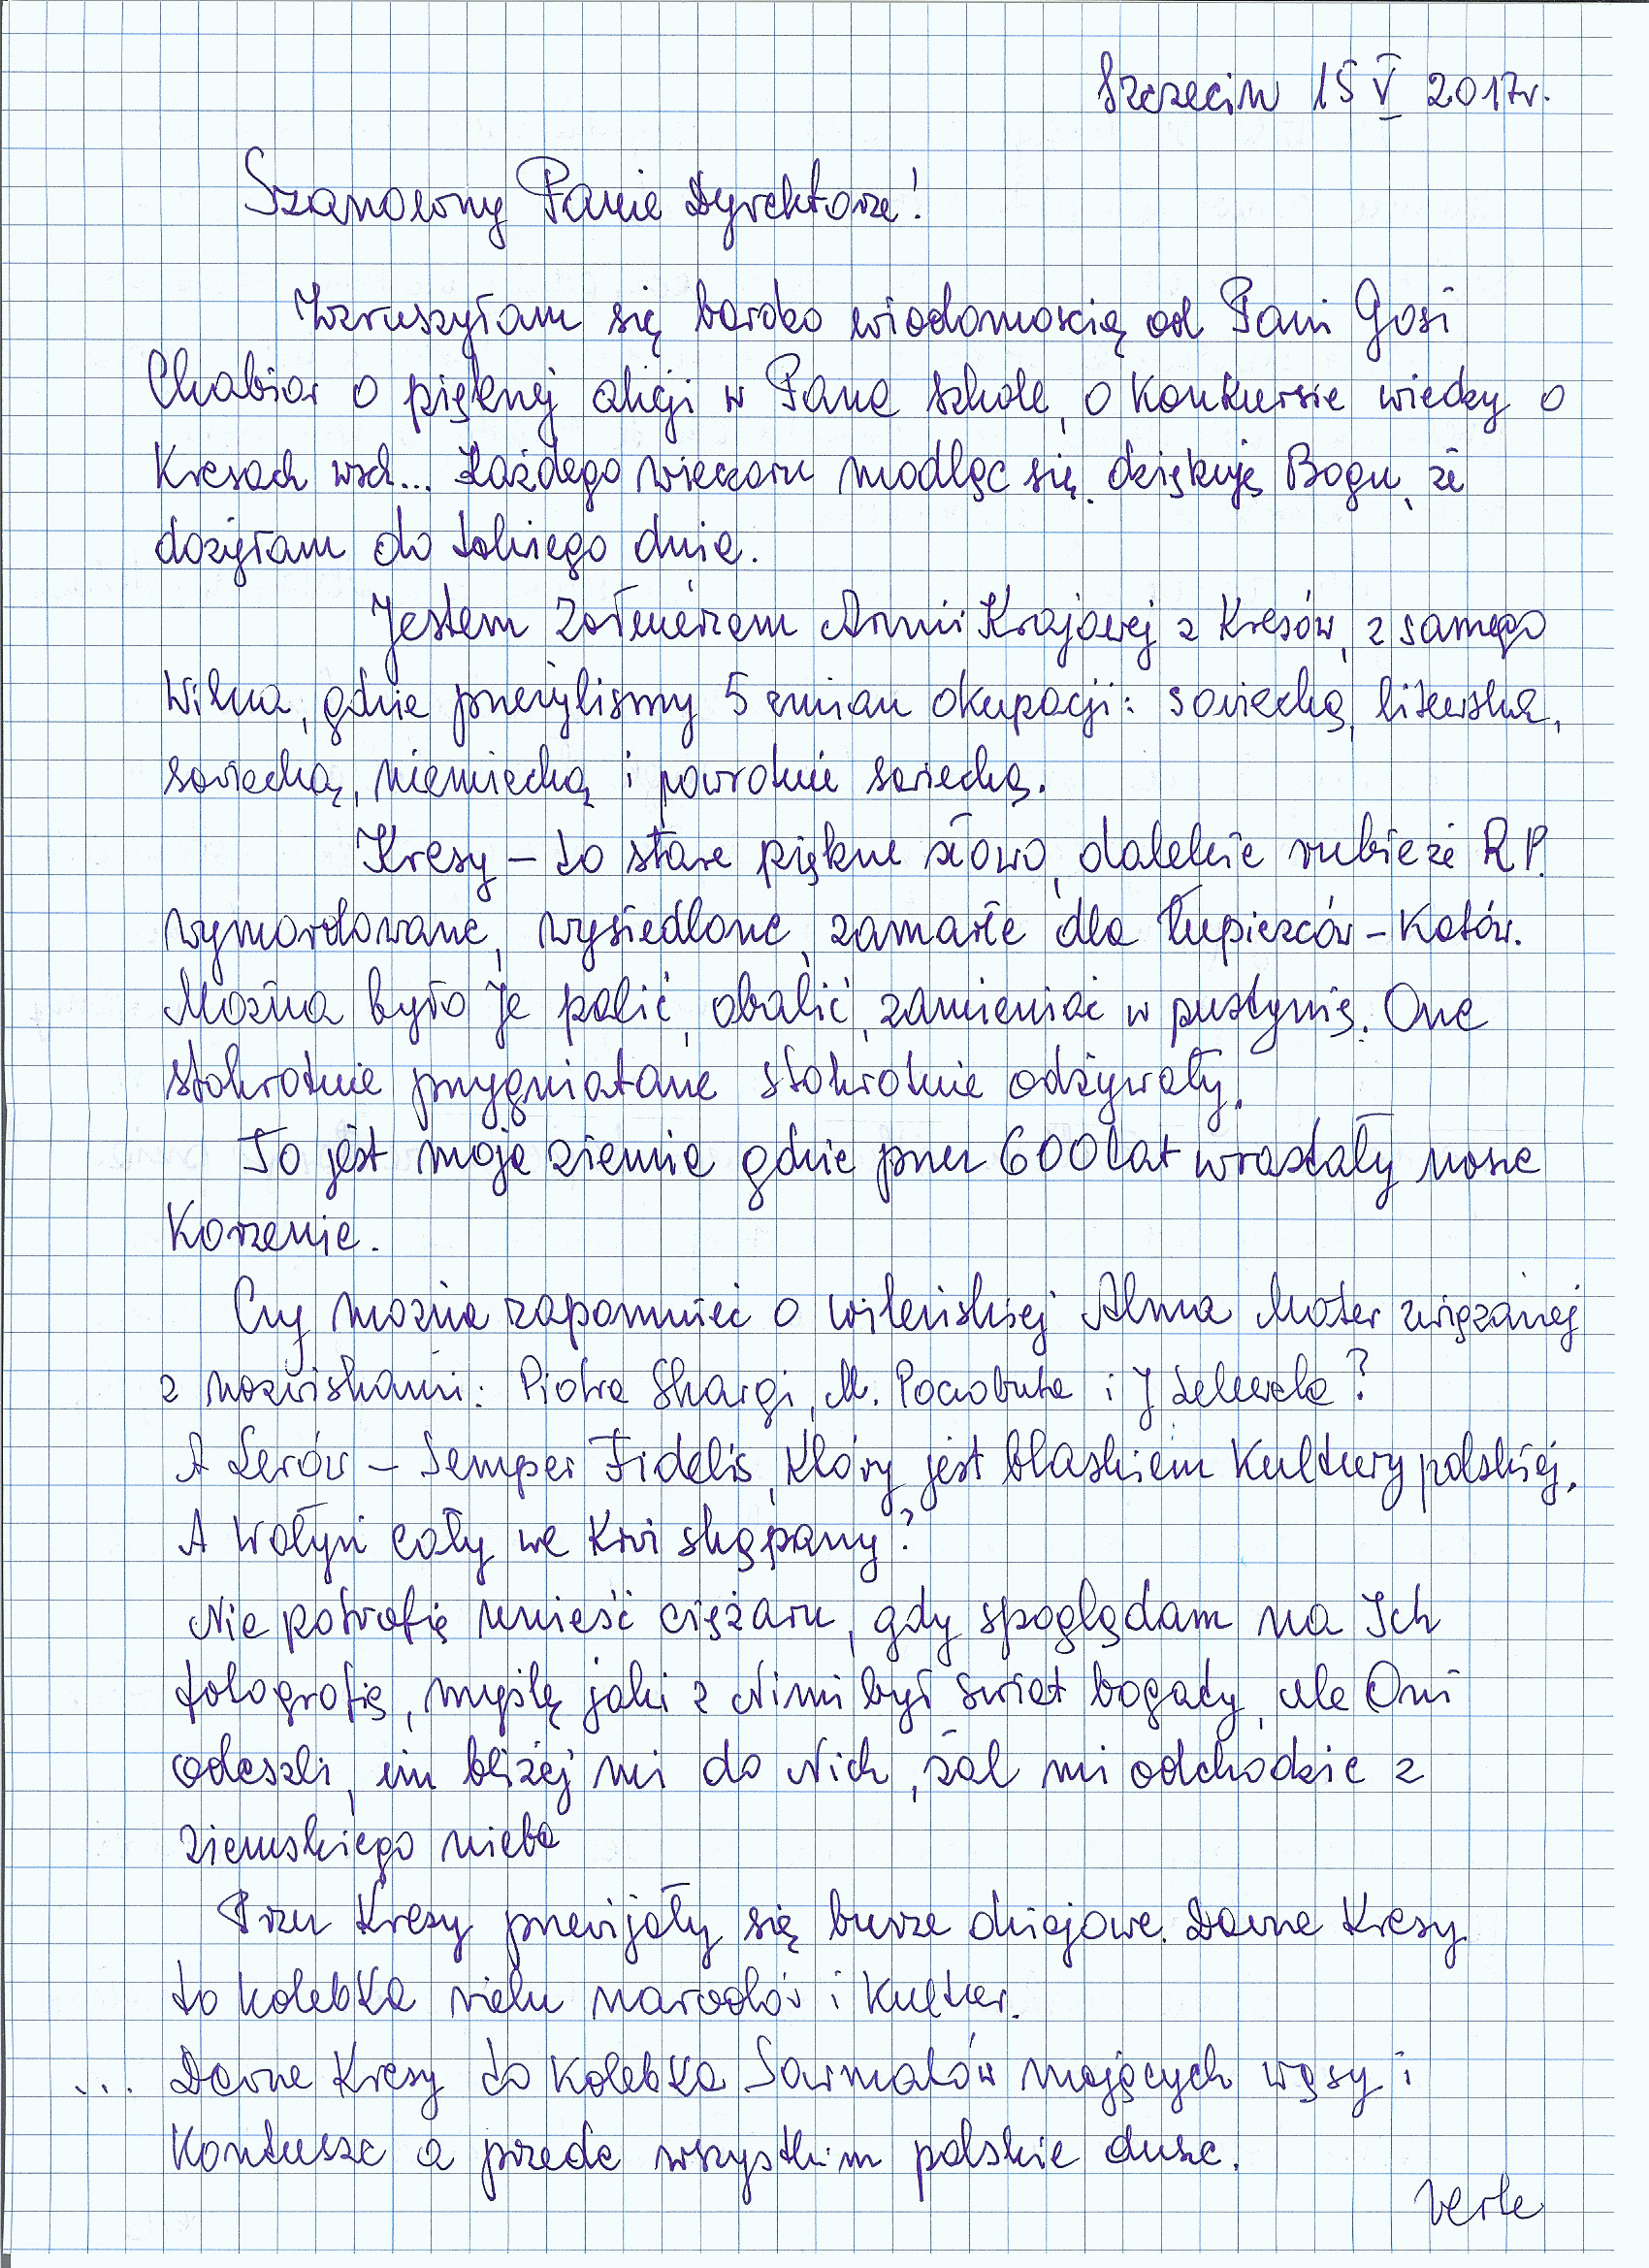 Szczecin 15 V 2017r.
Szanowny Panie Dyrektorze!
Wzruszyłam się bardzo wiadomością od Pani Gosi
Chabior o pięknej akcji w Pana szkole, o konkursie wiedzy o
Kresach wsch... Każdego wieczoru modląc się, dziękuję Bogu, że
dożyłam do takiego dnia.
Jestem żołnierzem Armii Krajowej z Kresów, z samego
Wilna, gdzie przeżyliśmy 5 zmian okupacji: sowiecką, litewską,
sowiecką, niemiecką i powrotnie sowiecką.
Kresy – to stare piękne słowo, dalekie rubieże R.P.
wymordowane, wysiedlone, zamarłe dla łupieżców – katów.
Można było je palić, obalić, zamieniać w pustynię. One
stokrotnie przygniatane stokrotnie odżywały.
To jest moja ziemia gdzie przez 600 lat wrastały nasze
korzenie.
Czy można zapomnieć o wileńskiej Alma Mater związanej
z nazwiskami: Piotra Skargi, M. Poczobuta i J Lelewela?
A Lwów – Semper Fidelis, który jest blaskiem kultury polskiej.
A Wołyń cały we krwi skąpany?
Nie potrafię unieść ciężaru, gdy spoglądam na Ich
fotografię, myślę jaki z Nimi był świat bogaty, ale Oni
odeszli, im bliżej mi do Nich, żal mi odchodzić z
ziemskiego nieba
Przez Kresy przewijały się burze dziejowe. Dawne Kresy
to kolebka wielu narodów i kultur.
... Dawne Kresy to kolebka Sarmatów mających wąsy i
kontusze a przede wszystkim polskie dusze.
verte